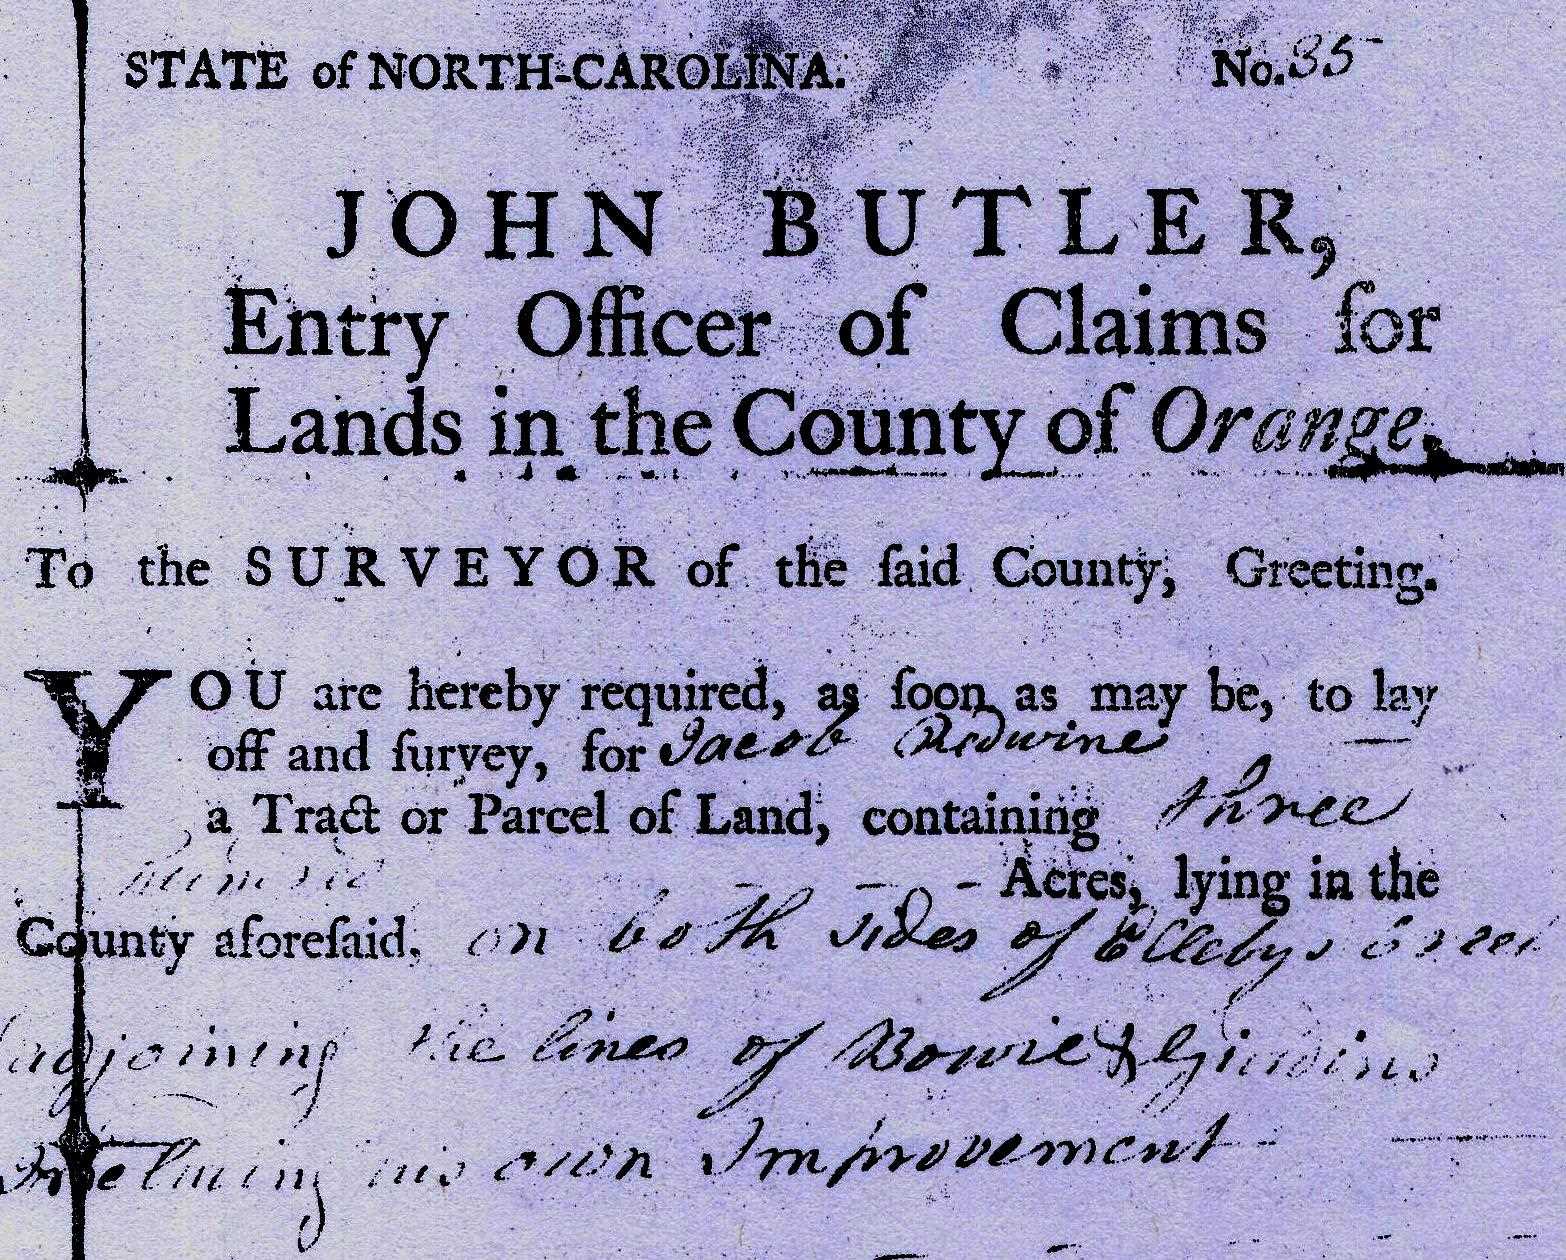 STATE of NORTH-CAROLINA. No. 35
JOHN BUTLER,
Entry Officer of Claims for
Lands in the County of Orange.
To the SURVEYOR of the ſaid County, Greeting.
YOU are hereby required, as ſoon as may be, to lay
off and ſurvey, for Jacob Redwine
a Tract or Parcel of Land, containing three
Acres, lying in the
County aforeſaid, on both sides of
adjoining the lines of Bowie &
his own Improvement